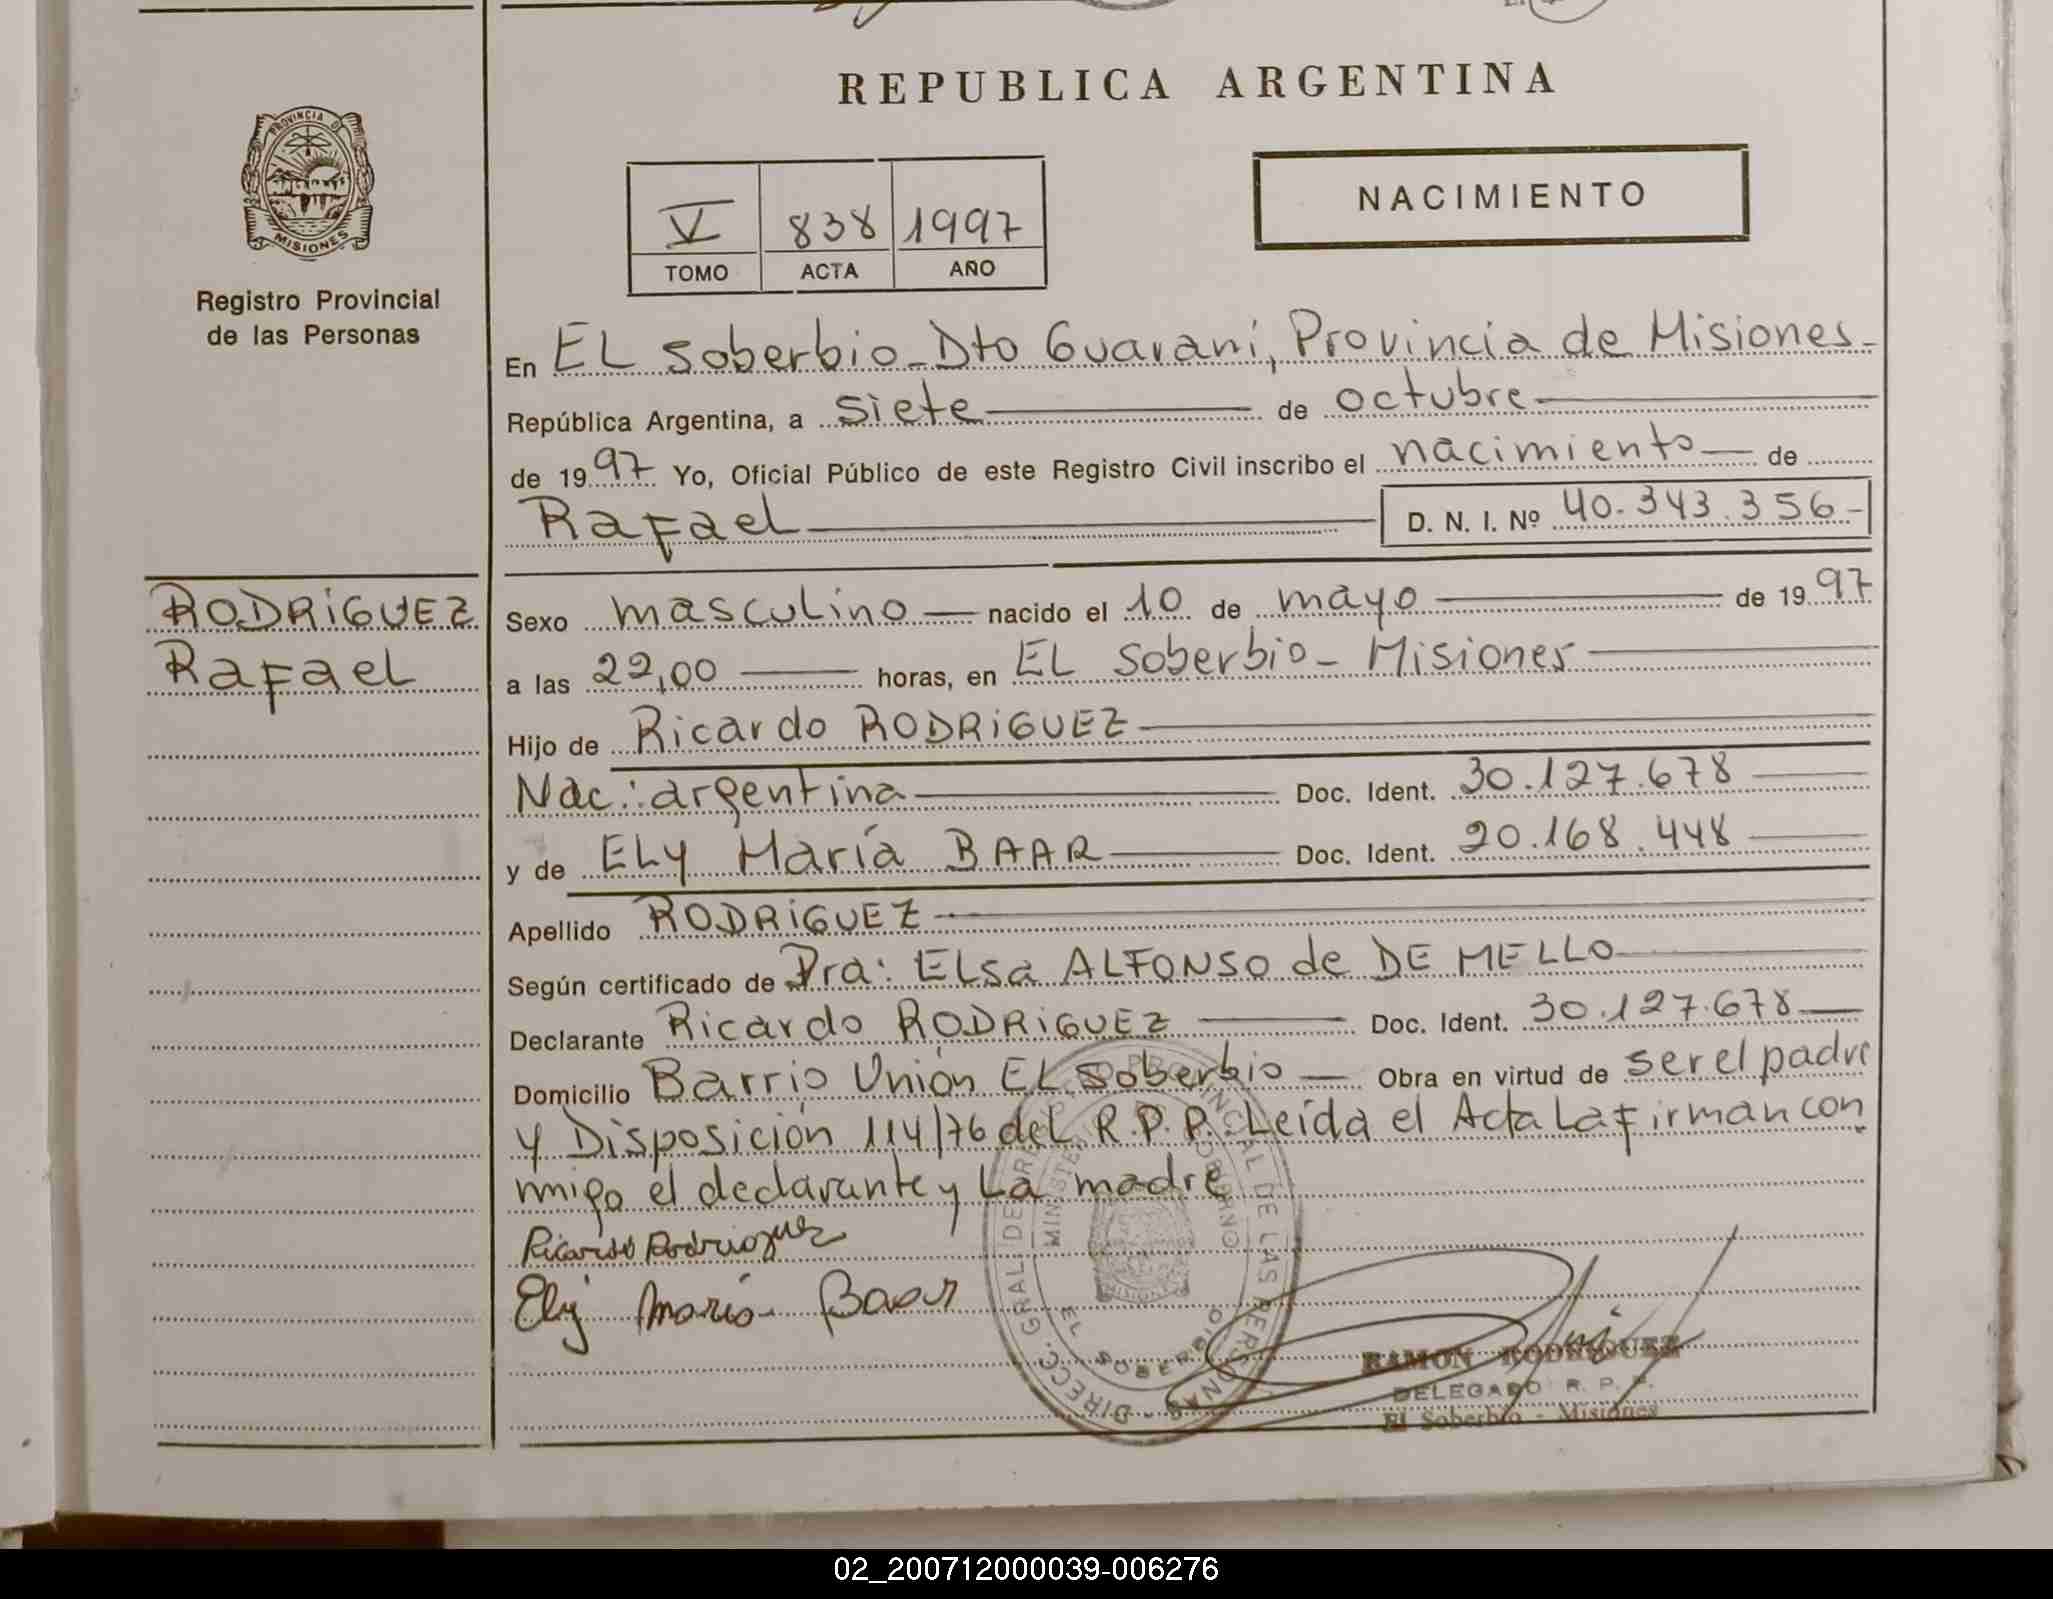 REPUBLICA ARGENTINA
PROVINCIA DE
MISIONES
Registro Provincial
de las Personas
V 838 1997
TOMO ACTA AÑO
NACIMIENTO
En EL Soberbio - Dto Guaraní, Provincia de Misiones -
República Argentina, a siete de octubre
de 1997 Yo, Oficial Público de este Registro Civil inscribo el nacimiento de
Rafael D. N. I. Nº 40.343.356-
RODRIGUEZ
Rafael
Sexo masculino nacido el 10 de mayo de 1997
a las 22,00 horas, en EL Soberbio - Misiones
Hijo de Ricardo RODRIGUEZ
Nac.: argentina Doc. Ident. 30.127.678
y de ELy María BAAR Doc. Ident. 20.168.448
Apellido RODRIGUEZ
Según certificado de Dra: ELsa ALFONSO de DE MELLO
Declarante Ricardo RODRIGUEZ Doc. Ident. 30.127.678
Domicilio Barrio Unión EL Soberbio Obra en virtud de ser el padre
y Disposición 114/76 del R.P.P. Leída el Acta La firman con
migo el declarante y La madre
Ricardo Rodriguez
Ely María Baar
DIRECC. GRAL DE REG. PROVINCIAL DE LAS PERSONAS
GOBIERNO
MISIONES
EL SOBERBIO
RAMON RODRIGUEZ
DELEGADO R. P. P.
El Soberbio - Misiones
02_200712000039-006276